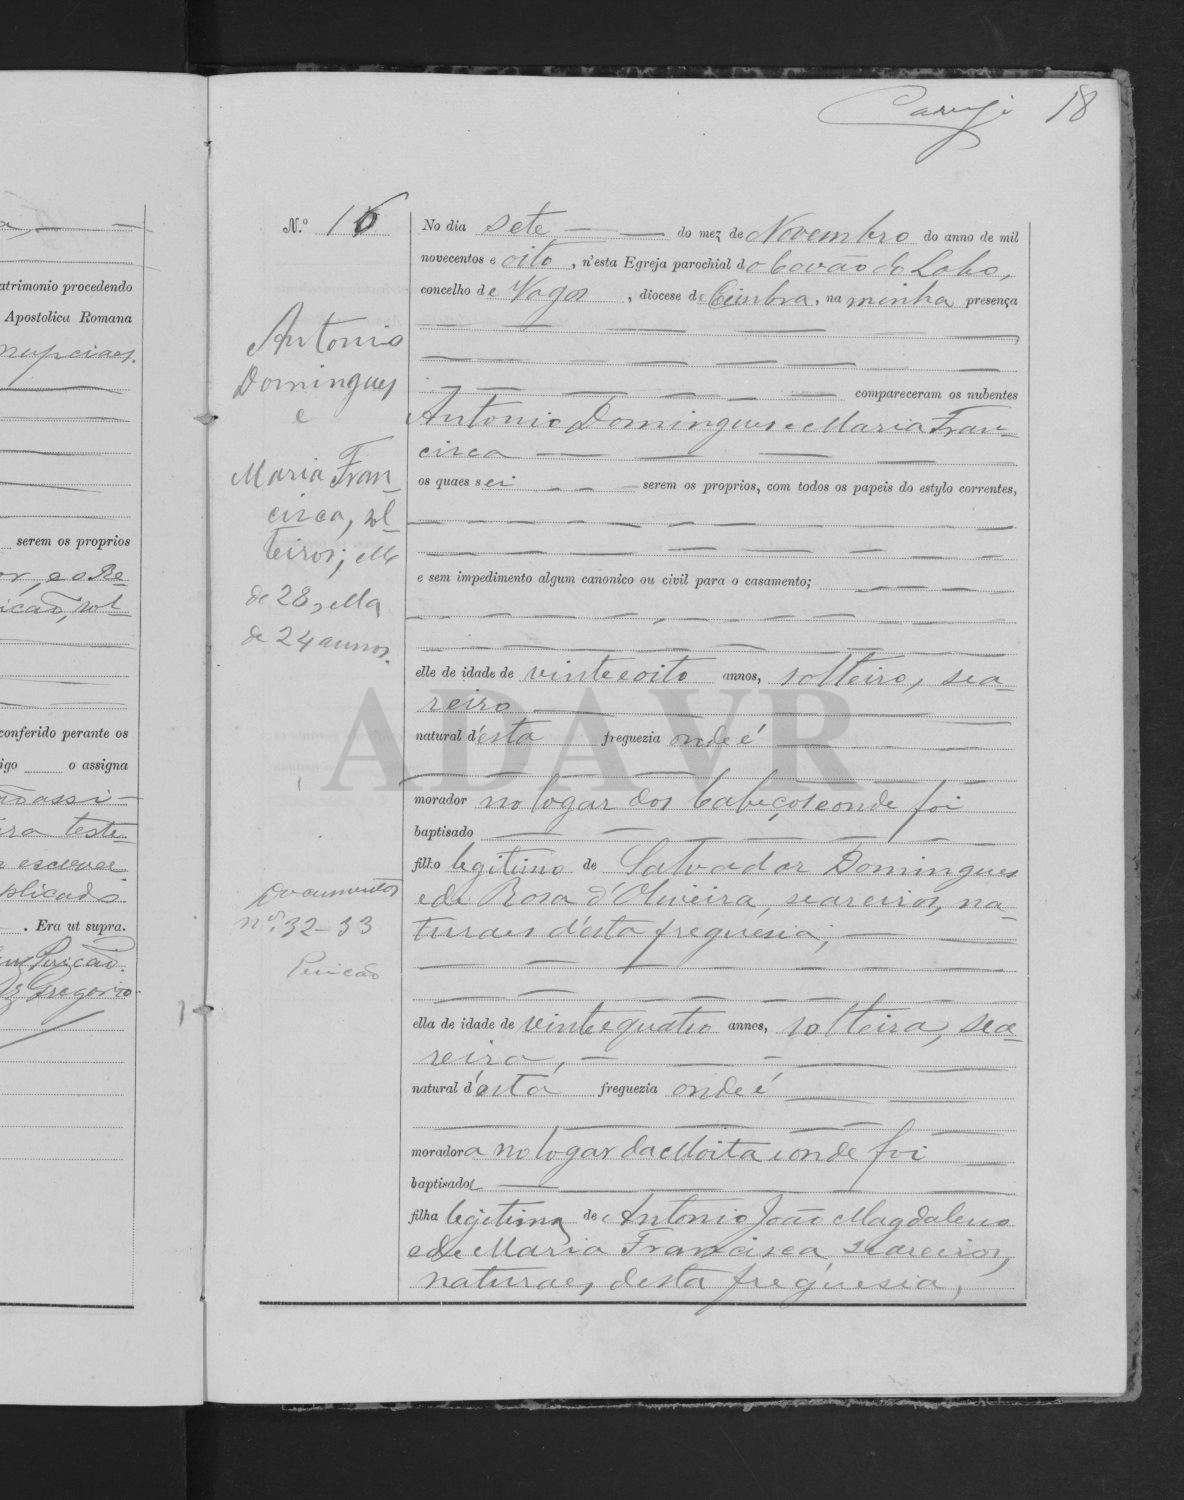 atrimonio procedendo
Apostolica Romana
nupciaes.
serem os proprios
or, e o Re-
icão, sol-
conferido perante os
igo o assigna
não assi-
ira teste-
escrever.
plicado
. Era ut supra.
Pericão.
Gregorio
18
N.º 16
Antonio
Domingues
e
Maria Fran-
cisca, sol-
teiros; elle
de 28, ella
de 24 annos.
Documentos
nos. 32-33
Pericão
No dia sete do mez de Novembro do anno de mil
novecentos e oito, n'esta Egreja parochial do Covão do Lobo,
concelho de Vagos, diocese de Coimbra, na minha presença
compareceram os nubentes
Antonio Domingues e Maria Fran-
cisca
os quaes sei serem os proprios, com todos os papeis do estylo correntes,
e sem impedimento algum canonico ou civil para o casamento;
elle de idade de vinte e oito annos, solteiro, sea-
reiro
natural d'esta freguezia onde é
morador no logar dos Cabeços e onde foi
baptisado
filho legitimo de Salvador Domingues
e de Rosa d'Oliveira, seareiros, na-
turaes d'esta freguesia;
ella de idade de vinte e quatro annos, solteira, sea-
reira,
natural d'esta freguezia onde é
moradora no logar da Moita e onde foi
baptisada
filha legitima de Antonio João Magdaleno
e de Maria Francisca, seareiros,
naturaes, desta freguesia,
ADAVR